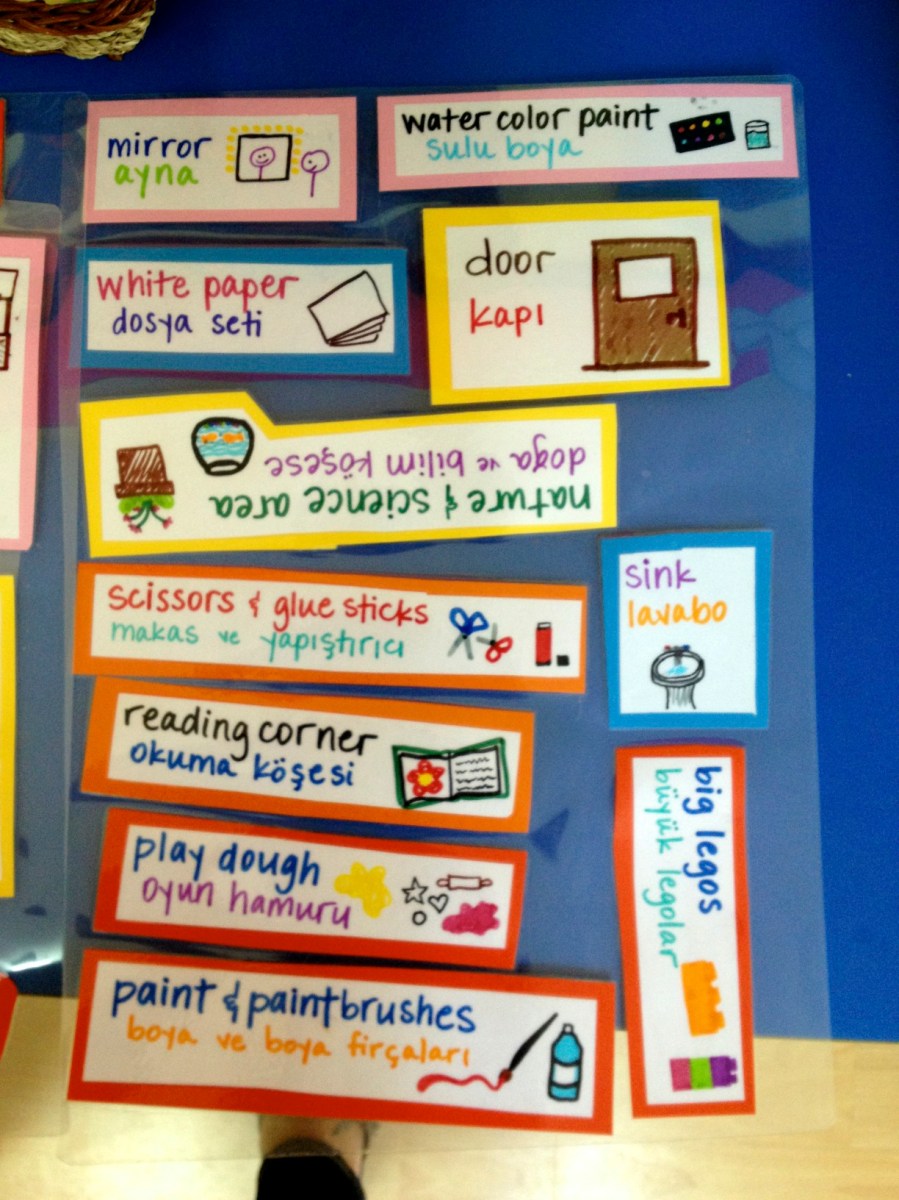 mirror
ayna
water color paint
sulu boya
white paper
dosya seti
door
kapı
nature & science area
doğa ve bilim köşese
scissors & glue sticks
makas ve yapıştırıcı
sink
lavabo
reading corner
okuma köşesi
big legos
büyük legolar
play dough
oyun hamuru
paint & paintbrushes
boya ve boya fırçaları